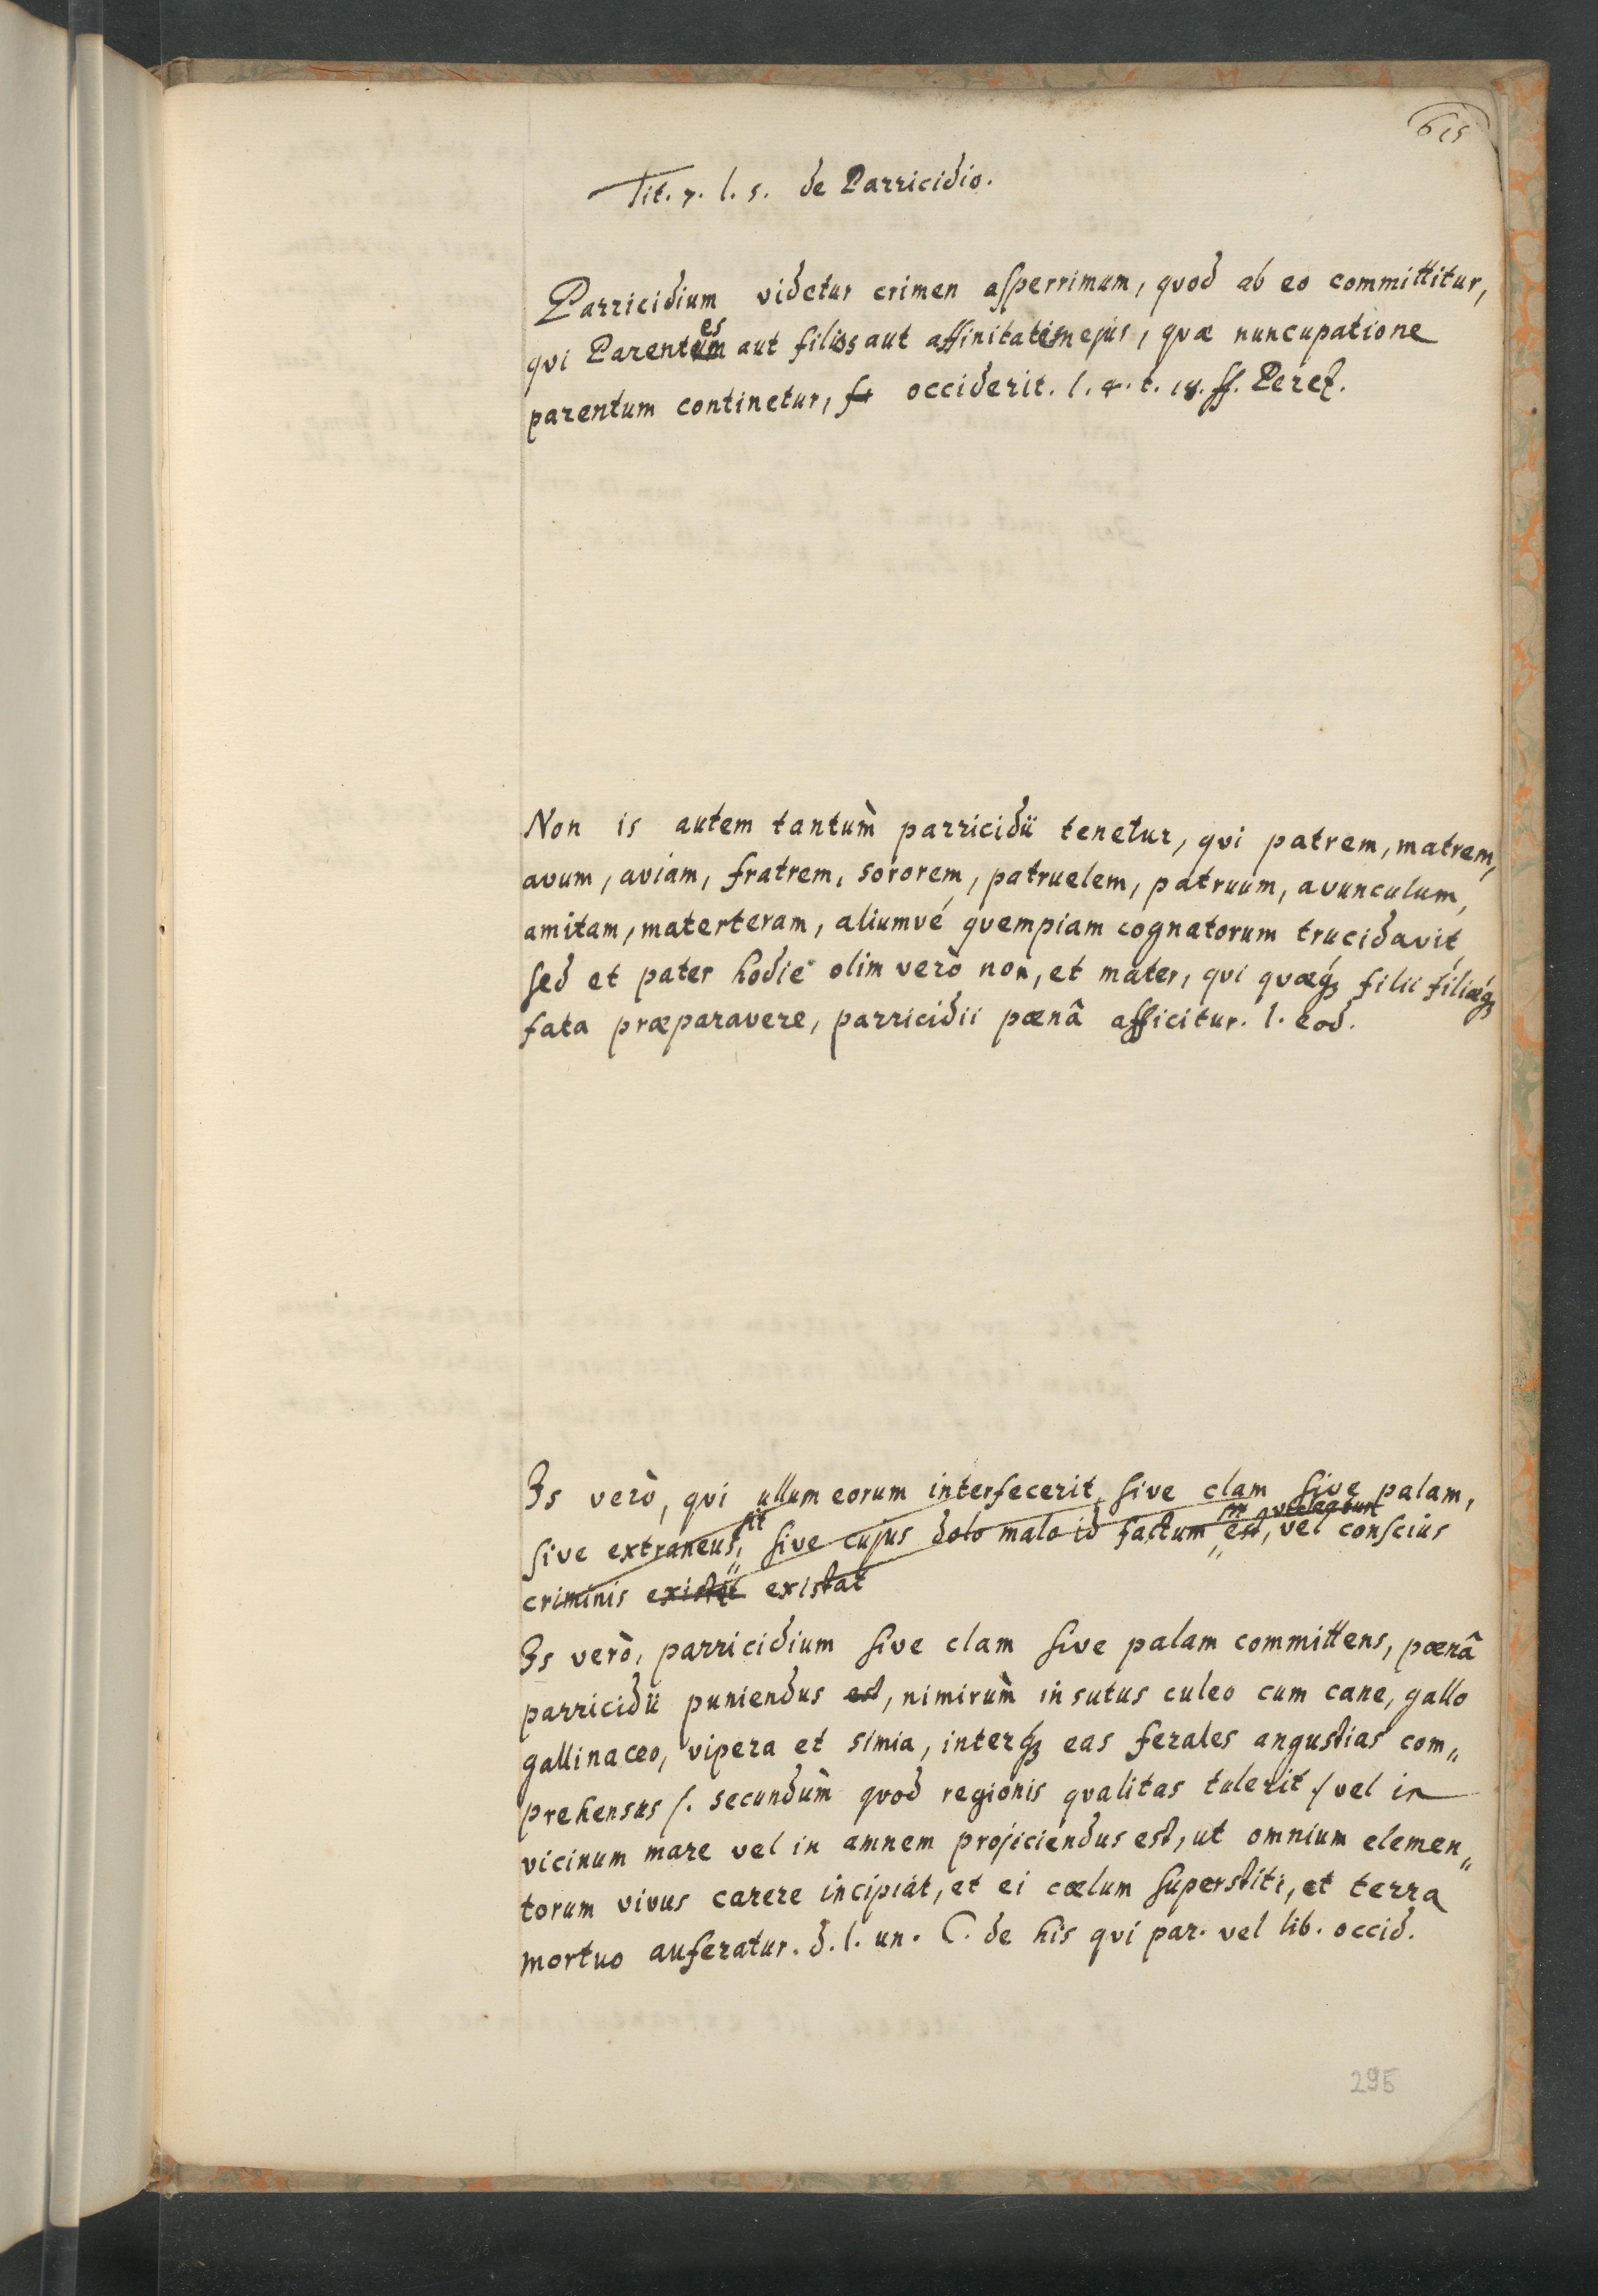 615
Tit. 7. l. 5. de Parricidio.
Parricidium videtur crimen aſperrimum, qvod ab eo committitur,
es
qvi Parentum aut filios aut affinitatem ejus, qvæ nuncupatione
parentum continetur, occiderit. l. 4. t. 18. ff. Perez.
Non is autem tantùm parricidii tenetur, qvi patrem, matrem,
avum, aviam, fratrem, sororem, patruelem, patruum, avunculum,
amitam, materteram, aliumvé qvempiam cognatorum trucidavit,
ſed et pater hodie olim verò non, et mater, qvi qvæq₃ filii filiæq₃
fata præparavere, parricidii pœnâ afficitur. l. eod.
Is verò, qvi ullum eorum interfecerit, ſive clam ſive palam,
ſit
ſive extraneus, ſive cujus dolo malo id factum est, vel conſcius
criminis existit existat
Is verò, parricidium ſive clam ſive palam committens, pœnâ
parricidii puniendus est, nimirùm insutus culeo cum cane, gallo
gallinaceo, vipera et simia, interq₃ eas ferales angustias com„
prehensus /. secundùm qvod regionis qvalitas tulerit ./ vel in
vicinum mare vel in amnem projiciendus est, ut omnium elemen„
torum vivus carere incipiat, et ei cœlum ſuperstiti, et terra
mortuo auferatur. d. l. un. C. de his qvi par. vel lib. occid.
295